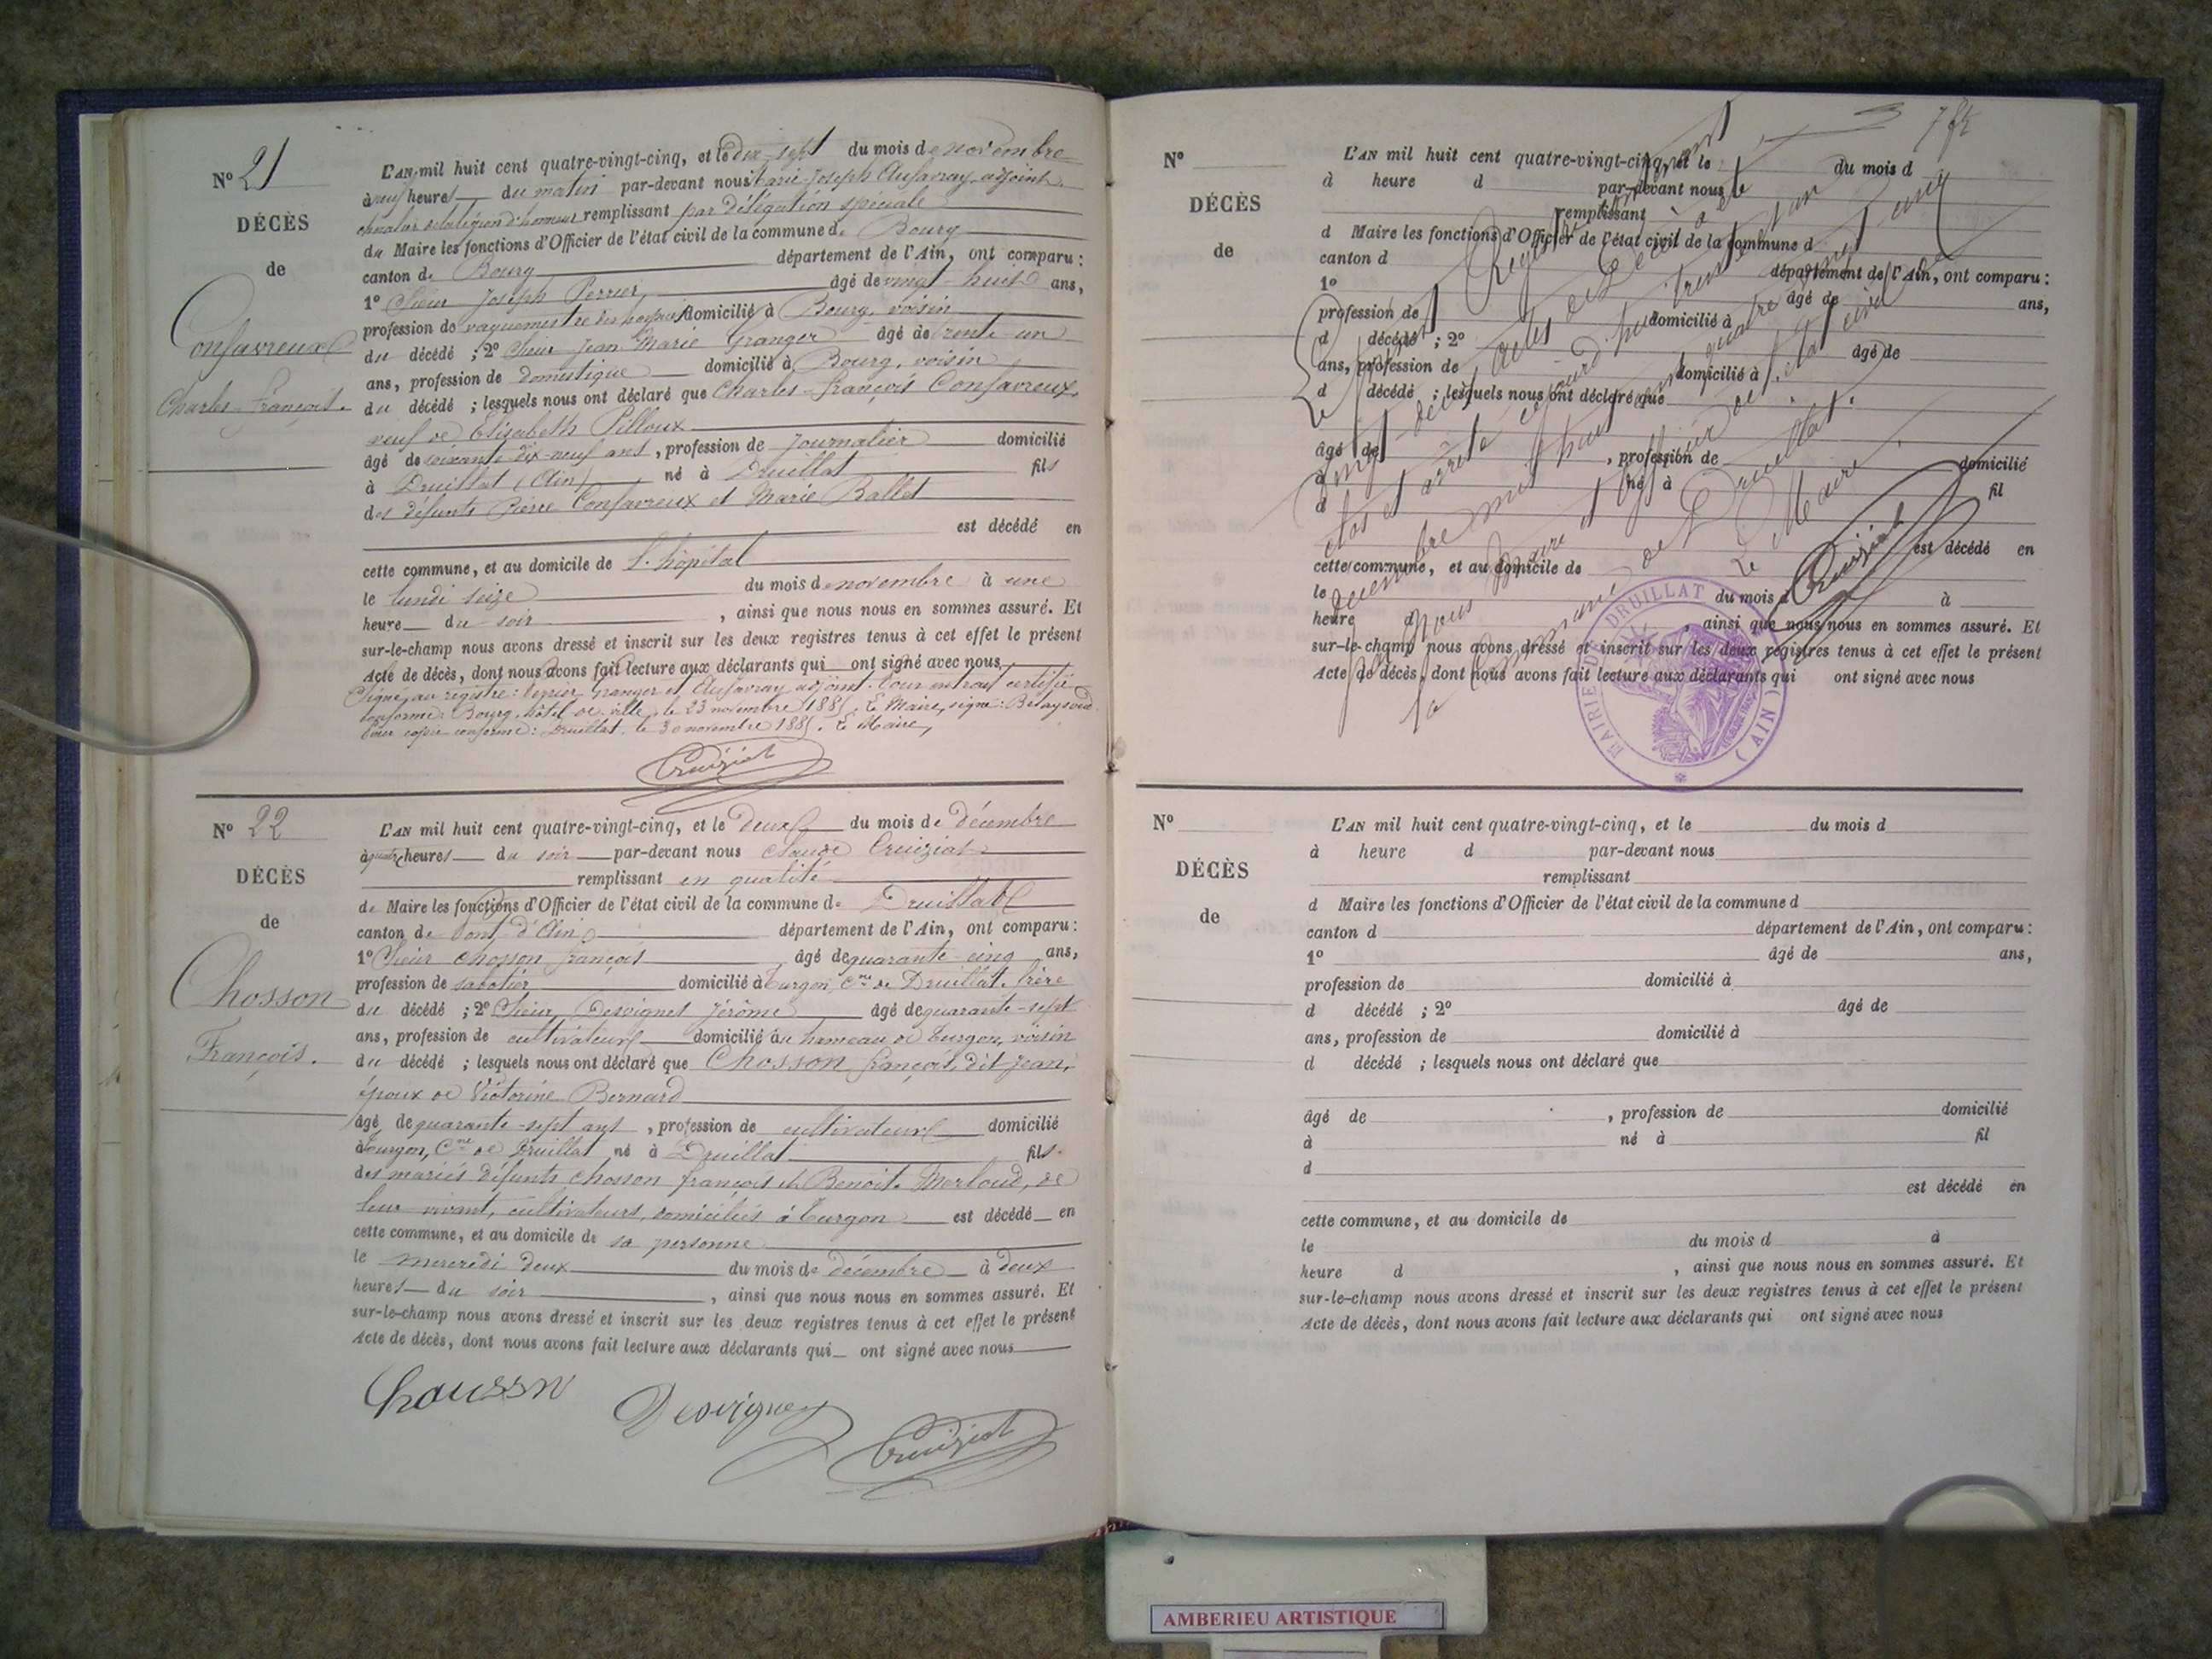 N° 21
DÉCÈS
de
Confavreux
Charles-François.
L'AN mil huit cent quatre-vingt-cinq, et le dix-sept du mois de novembre
à neuf heures du matin par-devant nous Marie-Joseph Aufavray, adjoint
chevalier de la légion d'honneur remplissant par délégation spéciale
du Maire les fonctions d'Officier de l'état civil de la commune de Bourg
canton de Bourg département de l'Ain, ont comparu :
1° Sieur Joseph Perrier, âgé de vingt-huit ans,
profession de vaguemestre des hospices domicilié à Bourg, voisin
du décédé ; 2° Sieur Jean Marie Granger âgé de trente-un
ans, profession de domestique domicilié à Bourg, voisin
du décédé ; lesquels nous ont déclaré que Charles-François Confavreux,
veuf de Elisabeth Pilloux
âgé de soixante-dix-neuf ans, profession de Journalier domicilié
à Druillat (Ain) né à Druillat fils
des défunts Pierre Confavreux et Marie Ballet
est décédé en
cette commune, et au domicile de l'hôpital
le lundi seize du mois de novembre à une
heure du soir, ainsi que nous nous en sommes assuré. Et
sur-le-champ nous avons dressé et inscrit sur les deux registres tenus à cet effet le présent
Acte de décès, dont nous avons fait lecture aux déclarants qui ont signé avec nous
Signé au registre : Perrier, Granger et Aufavray adjoint. Pour extrait certifié
conforme : Bourg, hôtel de ville, le 23 novembre 1885. Le Maire, signé :
Pour copie conforme : Druillat, le 30 novembre 1885. Le Maire,
Cruiziat
N° 22
DÉCÈS
de
Chosson
François.
L'AN mil huit cent quatre-vingt-cinq, et le deux du mois de décembre
à quatre heures du soir par-devant nous Claude Cruiziat
remplissant en qualité
de Maire les fonctions d'Officier de l'état civil de la commune de Druillat
canton de Pont d'Ain département de l'Ain, ont comparu :
1° Sieur Chosson françois âgé de quarante-cinq ans,
profession de sabotier domicilié à Turgon, Cne de Druillat, frère
du décédé ; 2° Sieur Desvignes Jérôme âgé de quarante-sept
ans, profession de cultivateur domicilié au hameau de Turgon, voisin
du décédé ; lesquels nous ont déclaré que Chosson françois, dit Jean,
époux de Victorine Bernard
âgé de quarante-sept ans, profession de cultivateur domicilié
à Turgon, Cne de Druillat né à Druillat fils
des mariés défunts Chosson françois et Benoite Merloud, de
leur vivant, cultivateurs, domiciliés à Turgon est décédé en
cette commune, et au domicile de sa personne
le mercredi deux du mois de décembre à deux
heures du soir, ainsi que nous nous en sommes assuré. Et
sur-le-champ nous avons dressé et inscrit sur les deux registres tenus à cet effet le présent
Acte de décès, dont nous avons fait lecture aux déclarants qui ont signé avec nous
Chausson
Desvignes
Cruiziat
N°
DÉCÈS
de
L'AN mil huit cent quatre-vingt-cinq, et le du mois d
à heure d par-devant nous
remplissant
d Maire les fonctions d'Officier de l'état civil de la commune d
canton d département de l'Ain, ont comparu :
1° âgé de ans,
profession de domicilié à
d décédé ; 2° âgé de
ans, profession de domicilié à
d décédé ; lesquels nous ont déclaré que
âgé de , profession de domicilié
à né à fil
d
est décédé en
cette commune, et au domicile de
le du mois d à
heure d , ainsi que nous nous en sommes assuré. Et
sur-le-champ nous avons dressé et inscrit sur les deux registres tenus à cet effet le présent
Acte de décès, dont nous avons fait lecture aux déclarants qui ont signé avec nous
Registre
actes de Décès a été
clos et arrêté ce jourd'hui trente un
décembre mil huit cent quatre vingt cinq
par nous Maire et officier de l'état civil de
la commune de Druillat.
Le Maire,
Cruiziat
MAIRIE DE DRUILLAT (AIN)
N°
DÉCÈS
de
L'AN mil huit cent quatre-vingt-cinq, et le du mois d
à heure d par-devant nous
remplissant
d Maire les fonctions d'Officier de l'état civil de la commune d
canton d département de l'Ain, ont comparu :
1° âgé de ans,
profession de domicilié à
d décédé ; 2° âgé de
ans, profession de domicilié à
d décédé ; lesquels nous ont déclaré que
âgé de , profession de domicilié
à né à fil
d
est décédé en
cette commune, et au domicile de
le du mois d à
heure d , ainsi que nous nous en sommes assuré. Et
sur-le-champ nous avons dressé et inscrit sur les deux registres tenus à cet effet le présent
Acte de décès, dont nous avons fait lecture aux déclarants qui ont signé avec nous
AMBERIEU ARTISTIQUE